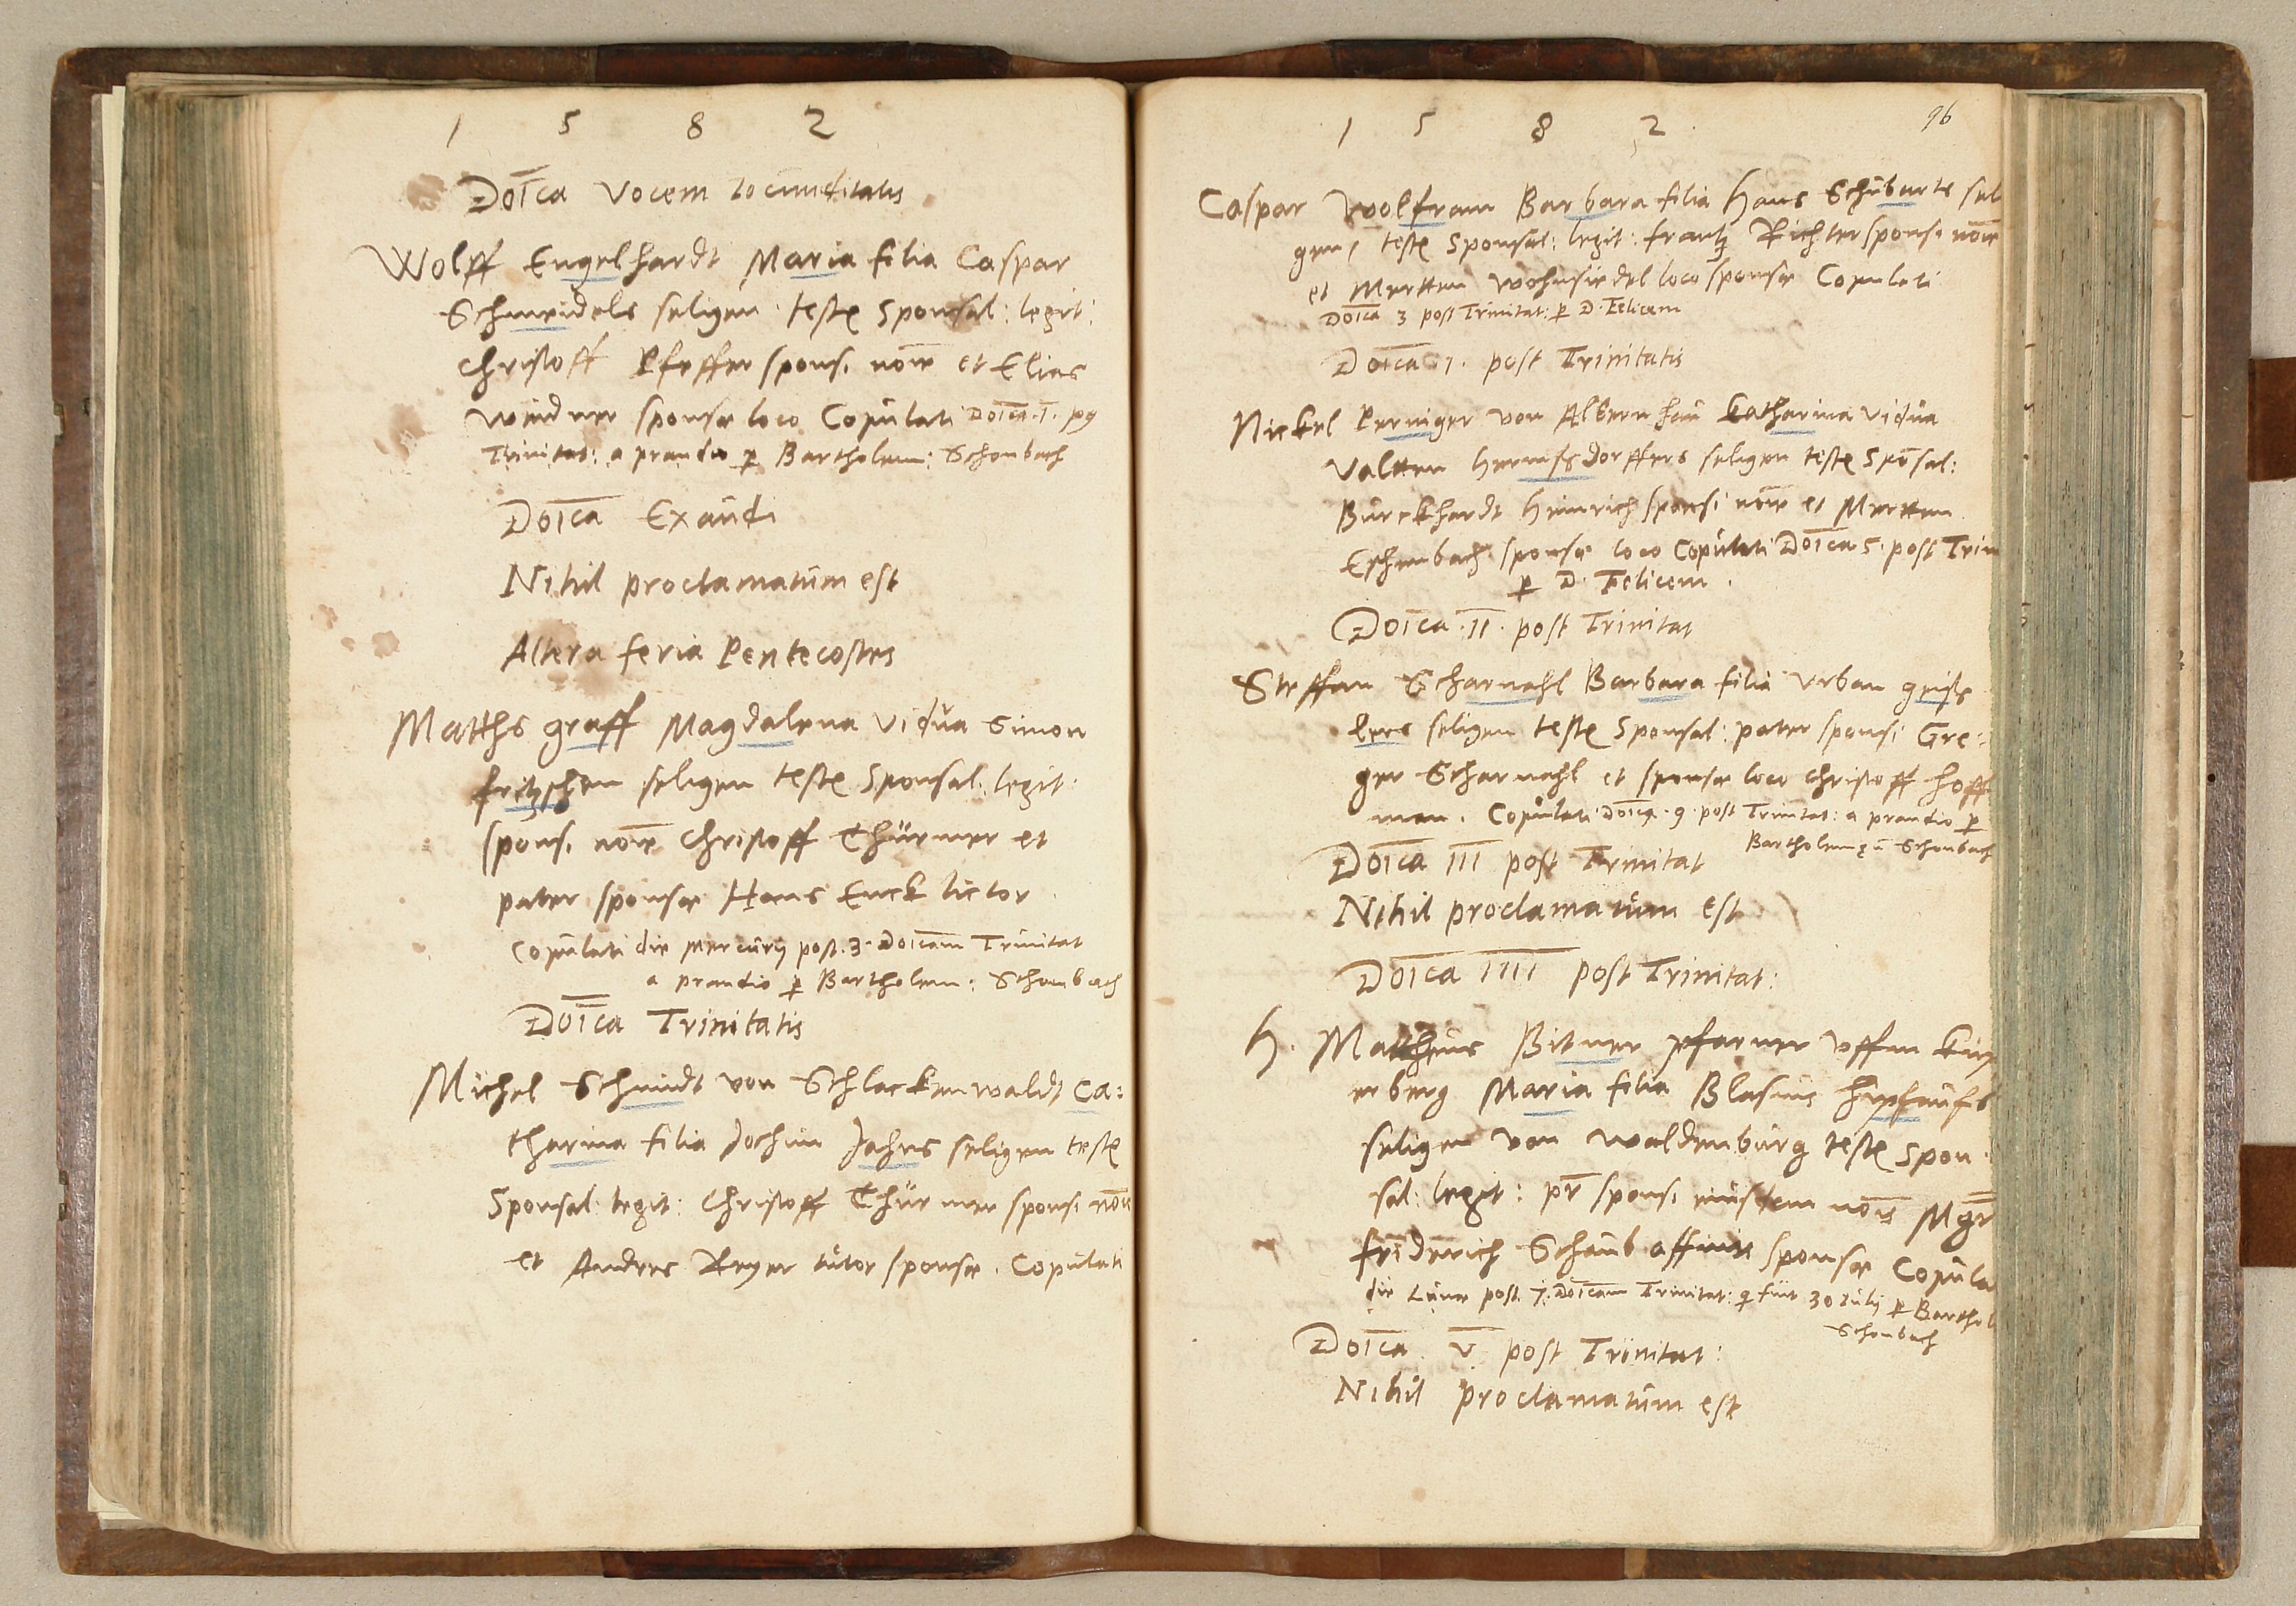 1 5 8 2
Doīca Vocem Iocunditatis
Wolff Engelhardt Maria filia Caspar
Schmeidels seligen teste Sponsal: legit:
Christoff Pfeffer sponsi noīe et Elias
Weidner sponsæ loco Copulati Doīca 1. p9
Trinitat: a prandio p Bartholem: Schonbach
Doīca Exaudi
Nihil proclamatum est
Altera feria Pentecostes
Matths graff Magdalena vidua Simon
fritzschen seligen teste Sponsal: legit:
sponsi noīe Christoff Thürmer et
pater sponsæ Hans Enck lictor
Copulati die Mercurij post 3. Doīcam Trinitat
a prandio p Bartholem: Schonbach
Doīca Trinitatis
Michel Schmidt von Schlackenwaldt Ca:
tharina filia Jochim Jahns seligen teste
Sponsal: legit: Christoff Thürmer sponsi noīe
et Andres Reyer tutor sponsæ. Copulati
1 5 8 2
96
Caspar Wolfram Barbara filia Hans Schubarts sel
gen teste Sponsal: legit: frantz Richter sponsi noīe
et Mertten Wohnsiedel loco sponsæ Copulati
Doīca 3 post Trinitat: p D. Felicem
Doīca 1. post Trinitatis
Nickel Perniger von Albernhau Katharina vidua
Valtten Hermssdorffers seligen teste Sponsal:
Burckhardt Heinrich sponsi noīe et Mertten
Eschenbach sponsæ loco Copulati Doīca 5. post Trin
p D. Felicem.
Doīca II post Trinitat
Steffan Scharnahl Barbara filia Urban geiss
lers seligen teste Sponsal: pater sponsi Gre:
ger Scharnahl et sponsæ loco Christoff Hoff
man. Copulati Doīca 9 post Trinitat: a prandio p
Bartholemeū Schonbach
Doīca III post Trinitat
Nihil proclamatum est
Doīca IIII post Trinitat:
H. Mattheus Bitner pfarner uffm
erberg Maria filia Blasius
seligen von Waldenburg teste Spon
sal: legit: pr̄ sponsi eiusdem noīs Mgr
friderich Schaub affinis sponsæ Copula
die Lunæ post 7. Doīcam Trinitat: q fuit 30 Iulij p Barthol
Schonbach
Doīca V post Trinitat:
Nihil proclamatum est